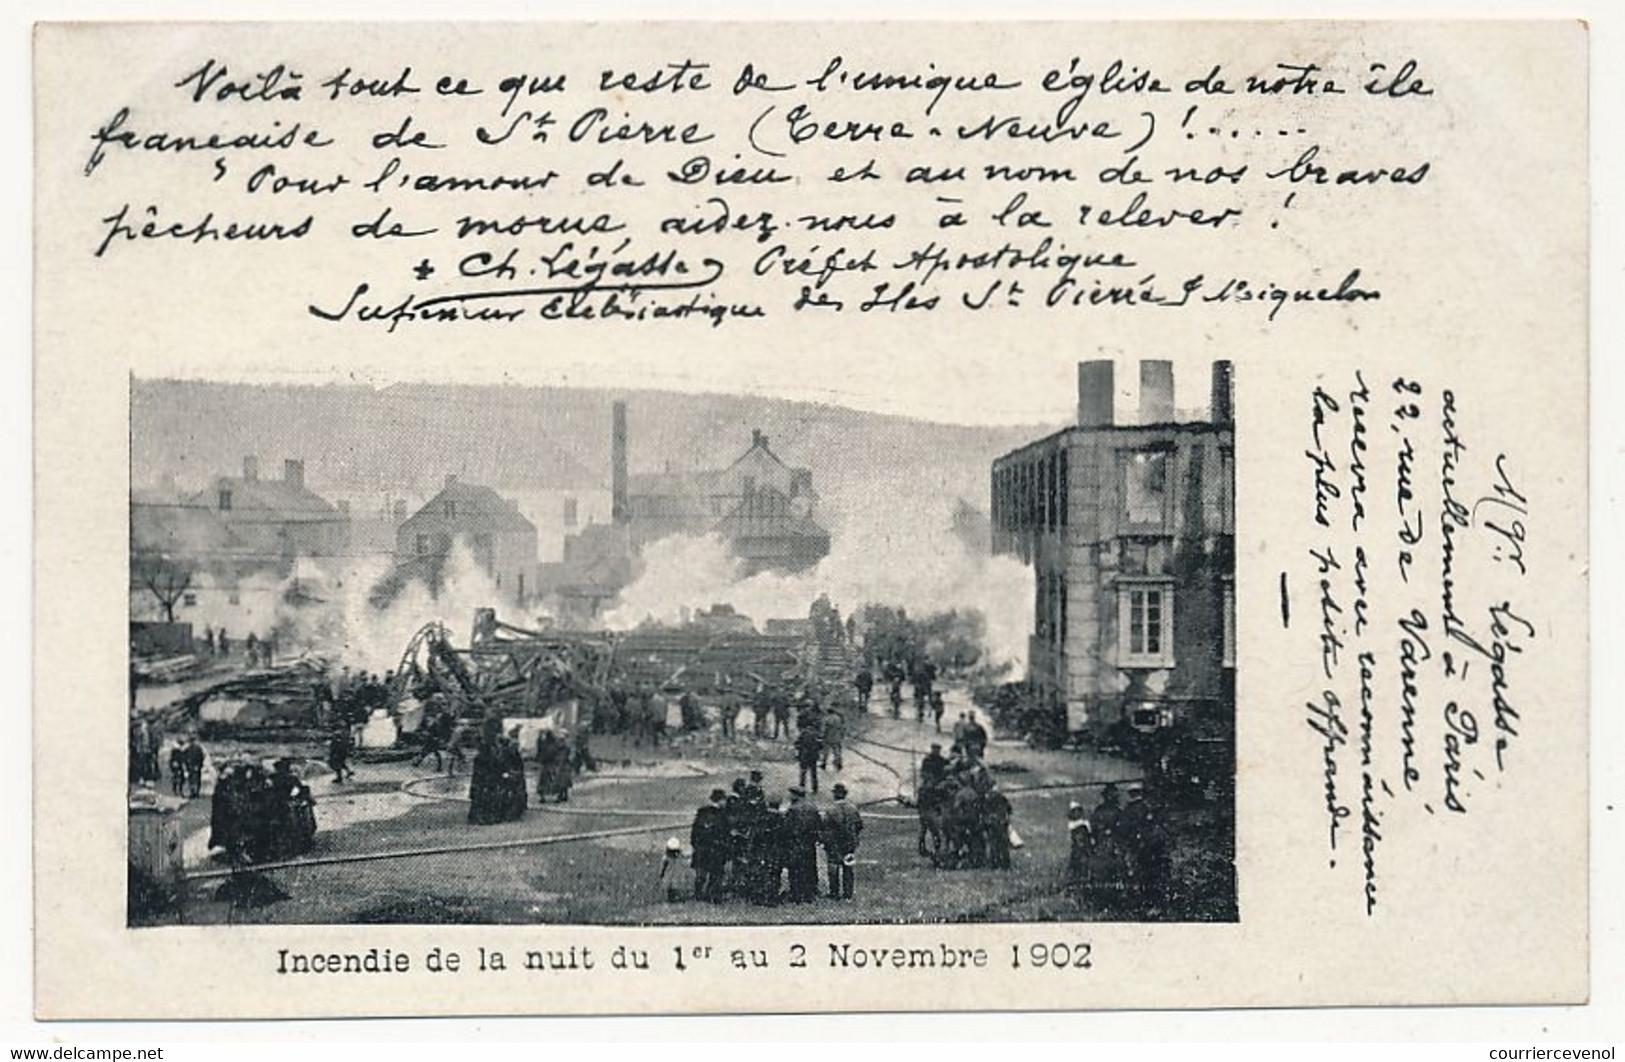 Voilà tout ce qui reste de l'unique église de notre île
française de St Pierre (Terre-Neuve) !......
Pour l'amour de Dieu et au nom de nos braves
pêcheurs de morue aidez-nous à la relever !
+ Ch. Légasse Préfet Apostolique
Supérieur Ecclésiastique des Iles St Pierre & Miquelon
Mgr Légasse
actuellement à Paris
22, rue de Varenne
recevra avec reconnaissance
la plus petite offrande.
Incendie de la nuit du 1er au 2 Novembre 1902
courriercevenol